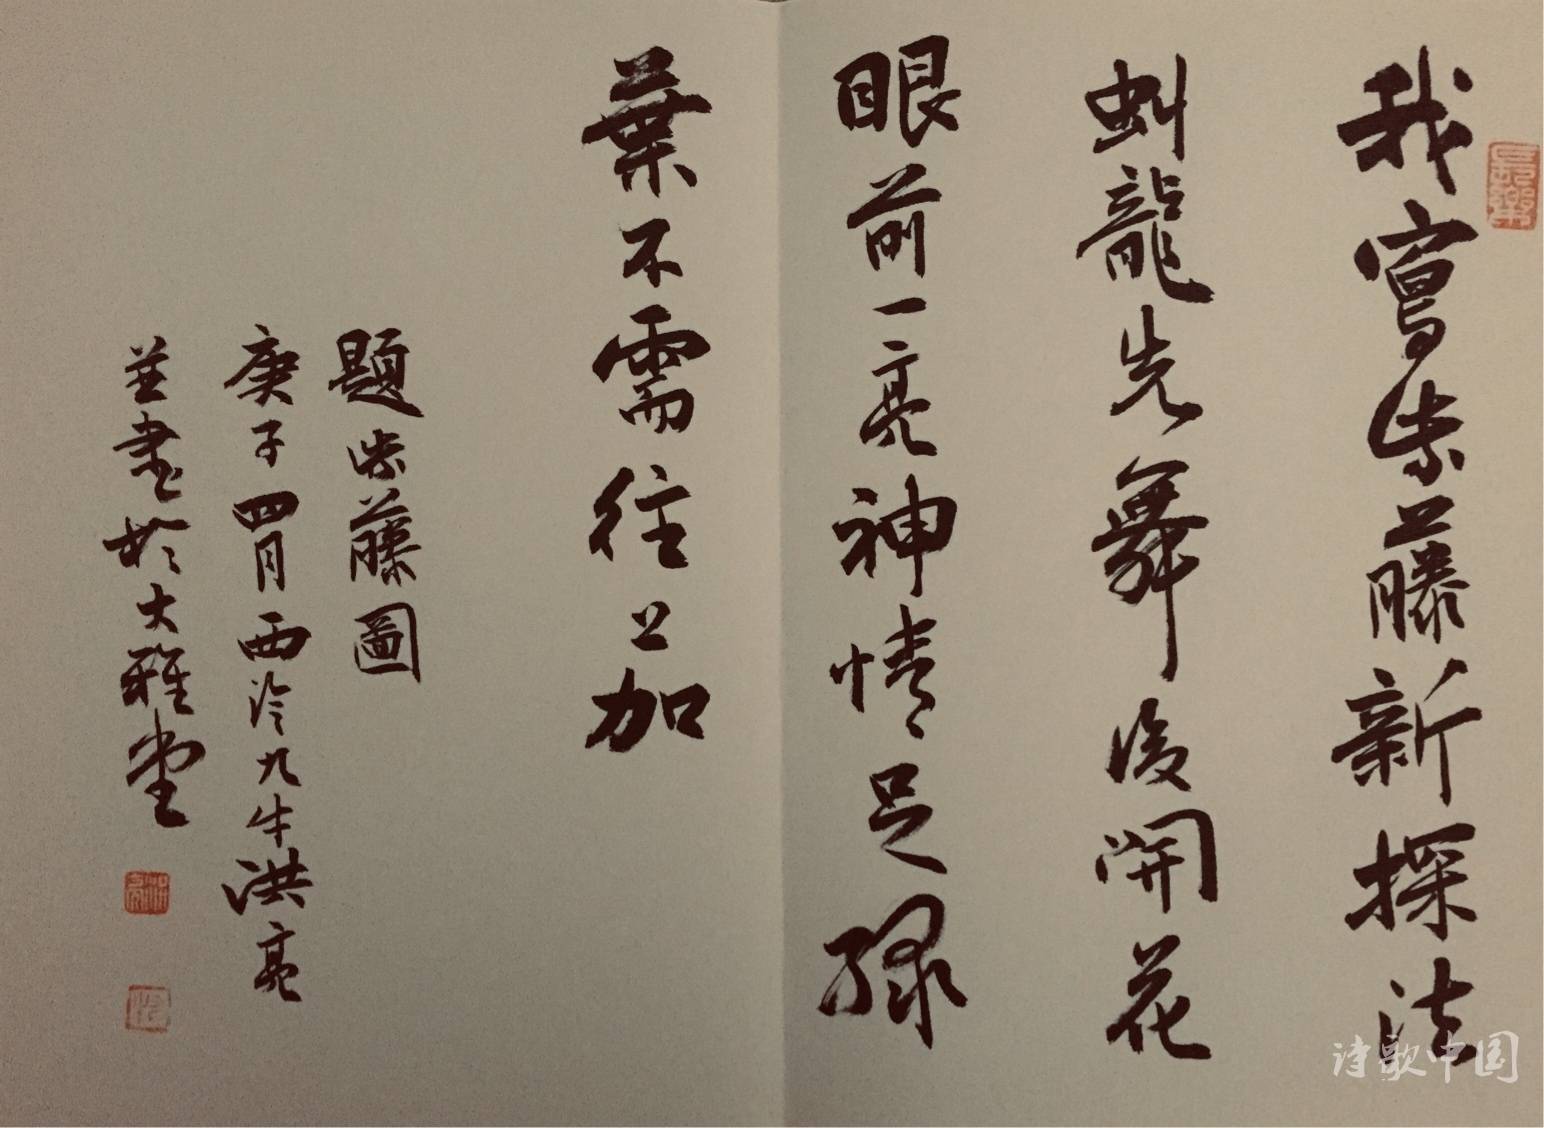 我寫紫藤新探法
虯龍先舞後開花
眼前一亮神情足綠
葉不需往上加
題紫藤圖
庚子四月西泠九牛洪亮
並書於大雅堂
長樂
洪亮
诗歌中国